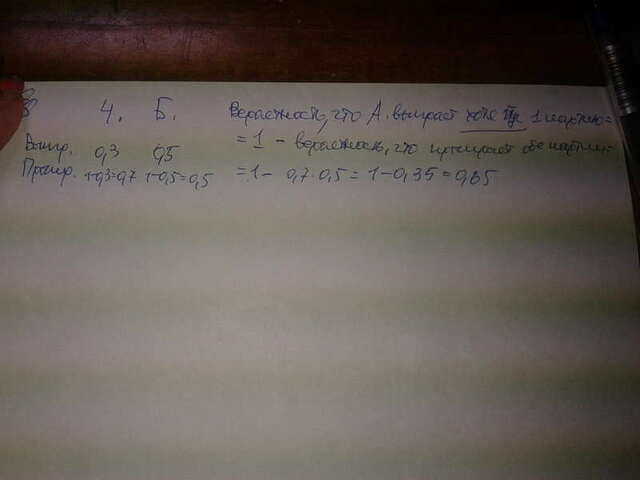 4. Б. Вероятность, что А. выиграет хотя бы 1 партию =
Выигр. 0,3 0,5 = 1 - вероятность, что проиграет обе партии =
Проигр. 1-0,3=0,7 1-0,5=0,5 = 1 - 0,7·0,5 = 1-0,35 = 0,65